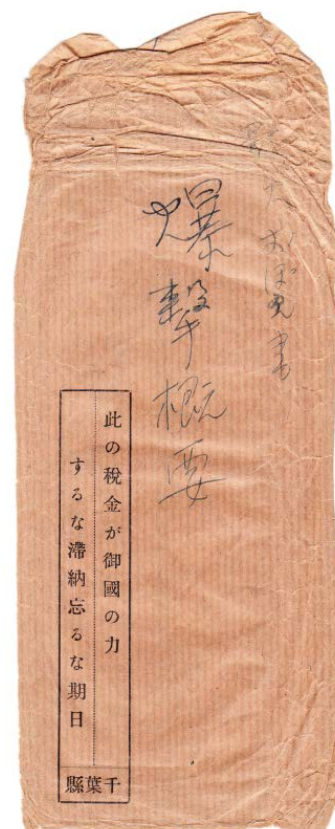 おぼえ書
爆撃概要
此の税金が御國の力
するな滯納忘るな期日
千葉縣